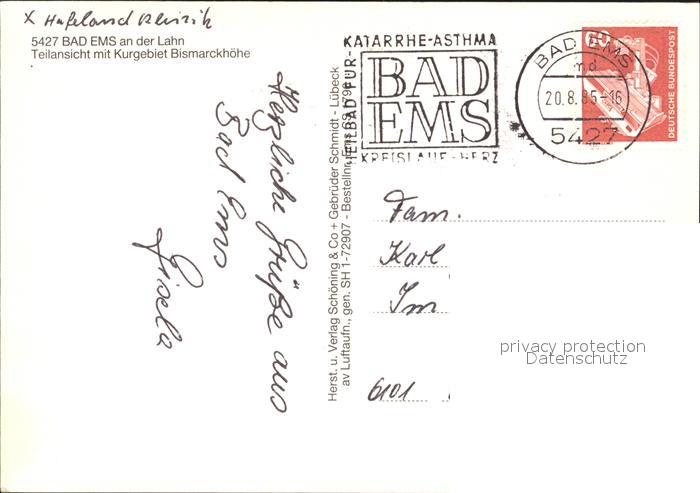 x Hufeland Klinik
5427 BAD EMS an der Lahn
Teilansicht mit Kurgebiet Bismarckhöhe
Herzliche Grüße aus
Bad Ems
Gisela
Herst. u. Verlag Schöning & Co + Gebrüder Schmidt - Lübeck
av Luftaufn., gen. SH 1-72907 - Bestellnr.
HEILBAD FÜR
KATARRHE-ASTHMA
BAD
EMS
KREISLAUF-HERZ
BAD EMS
md
20.8.85-16
5427
60
DEUTSCHE BUNDESPOST
Fam.
Karl
Im
6101
privacy protection
Datenschutz